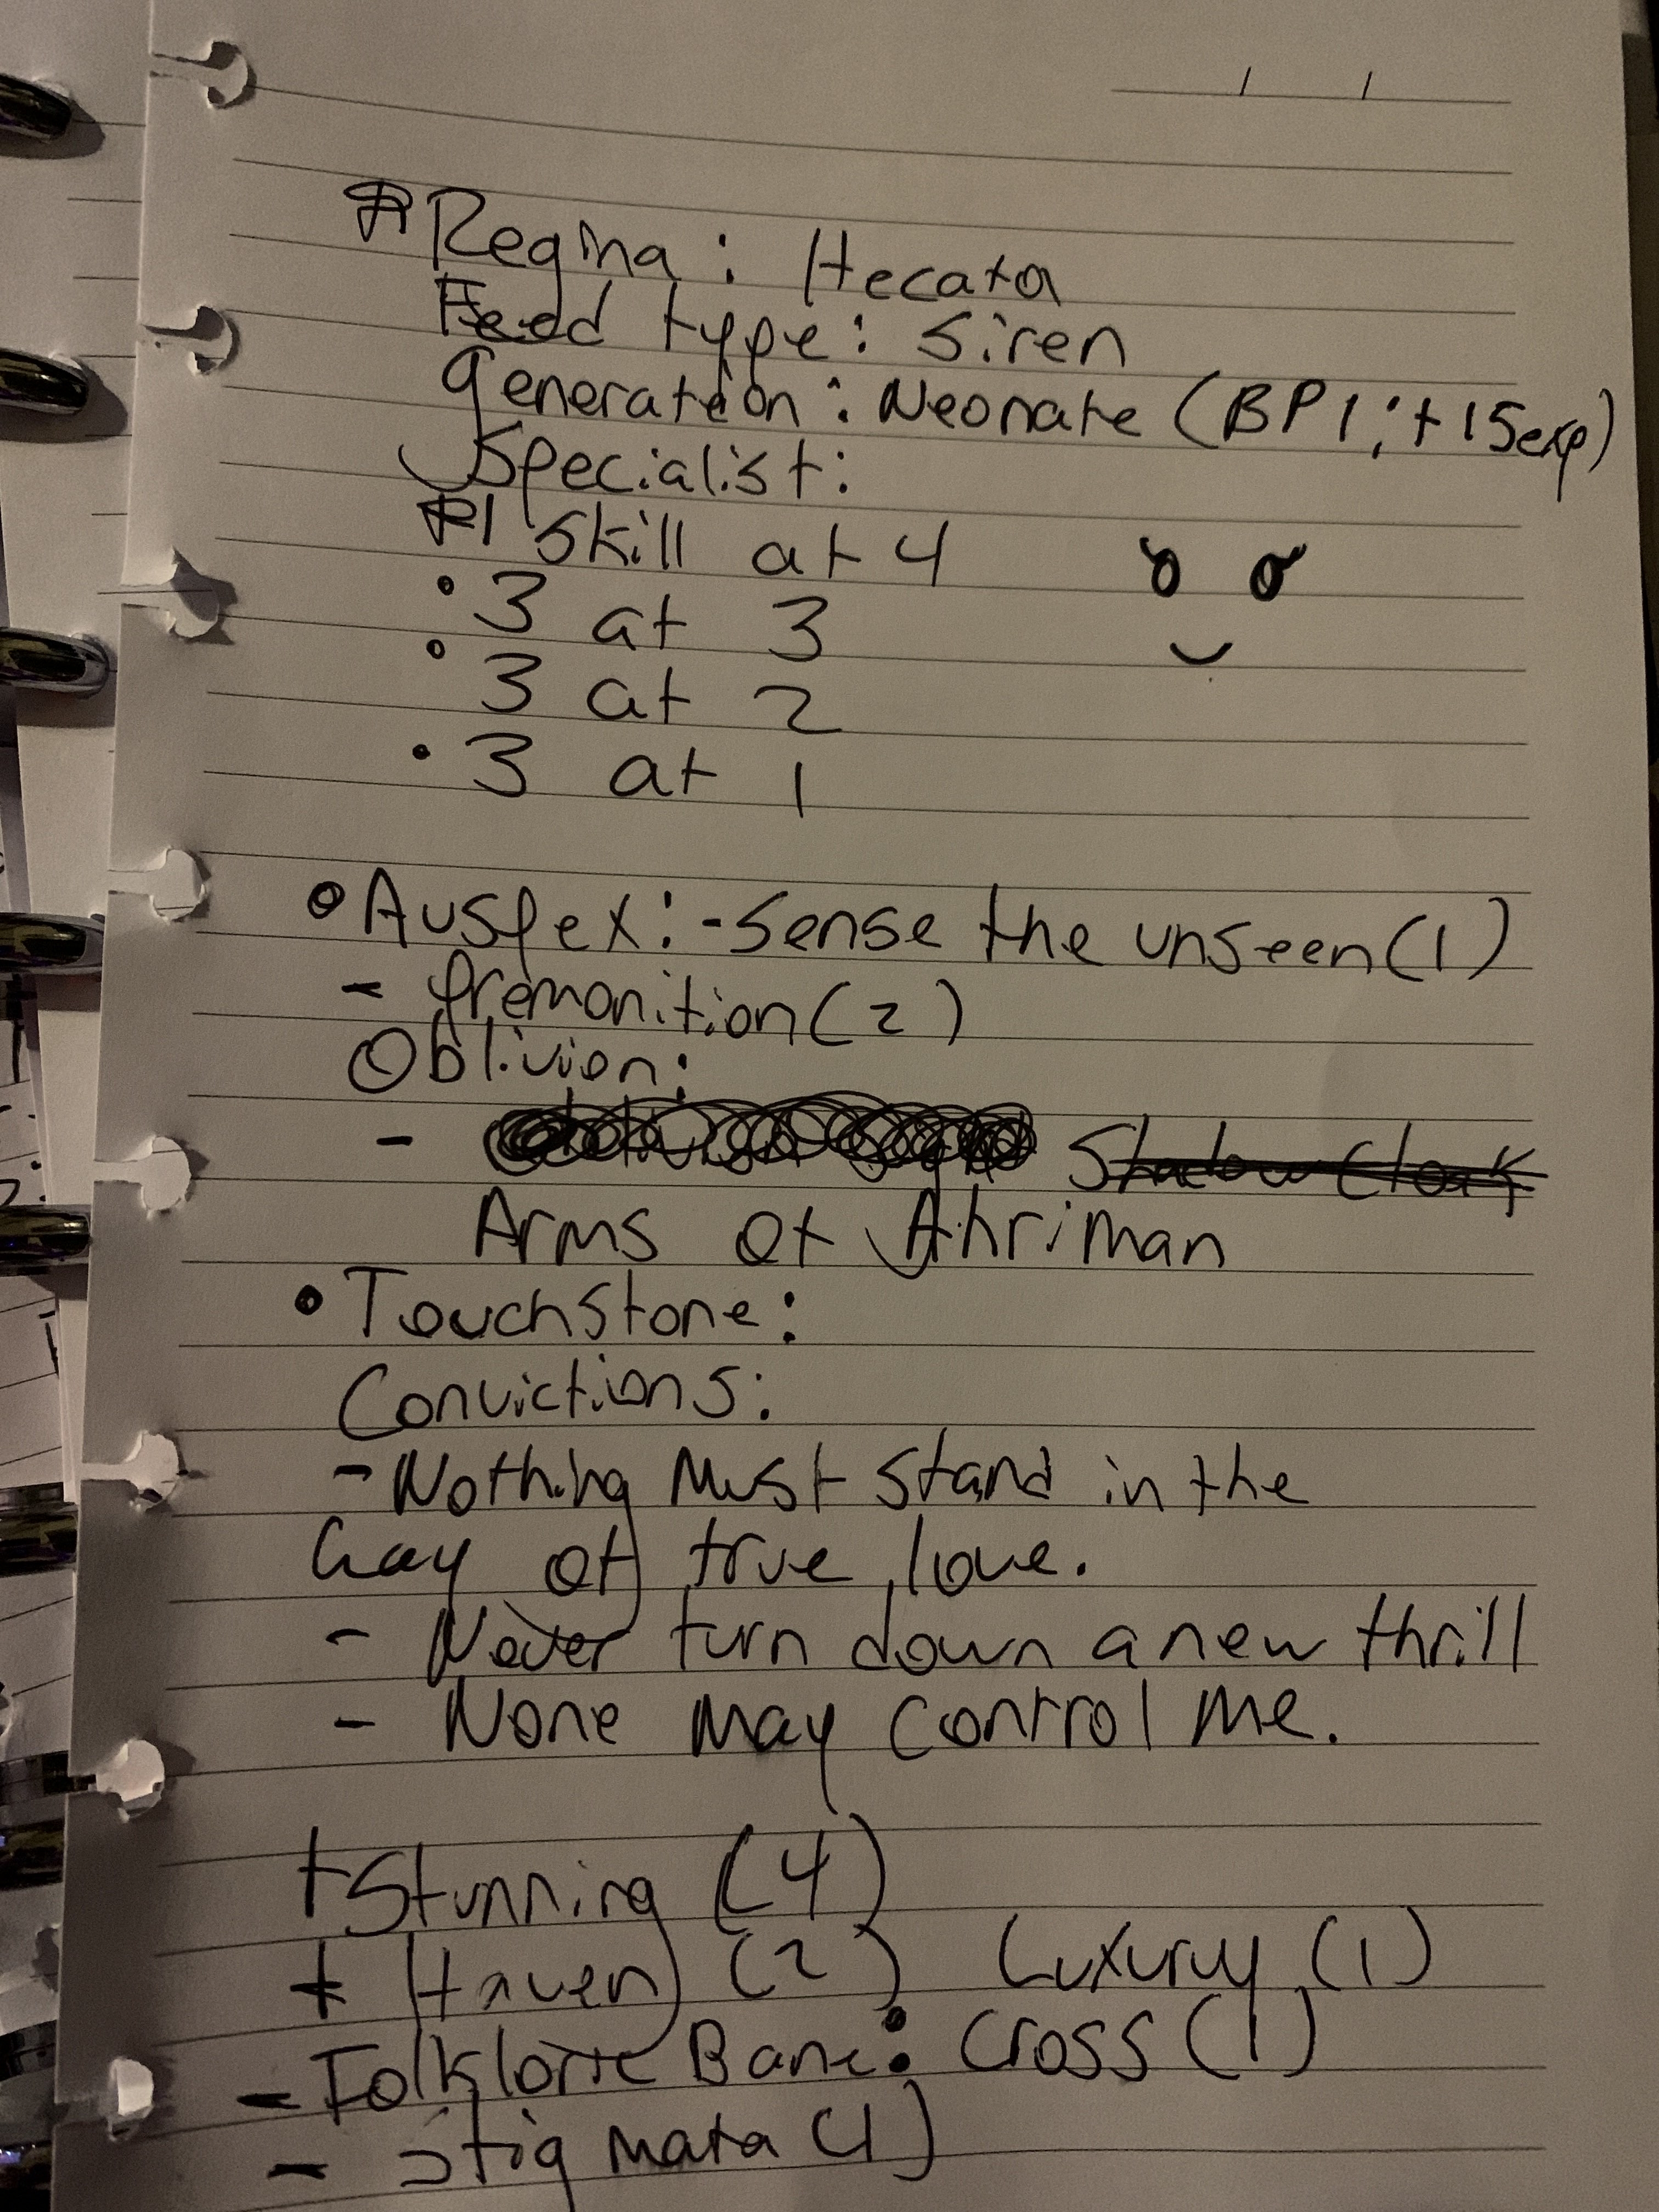 Regina: Hecata
Feed type: Siren
Generation: Neonate (BP 1; +15exp)
Specialist:
1 Skill at 4
• 3 at 3
• 3 at 2
• 3 at 1
• Auspex: - Sense the unseen (1)
- Premonition (2)
Oblivion:
- Shadow Cloak
Arms of Ahriman
• Touchstone:
Convictions:
- Nothing Must Stand in the
way of true love.
- Never turn down a new thrill
- None May Control Me.
+ Stunning (4)
+ Haven (2) Luxury (1)
- Folkloric Bane: Cross (1)
- Stigmata (1)